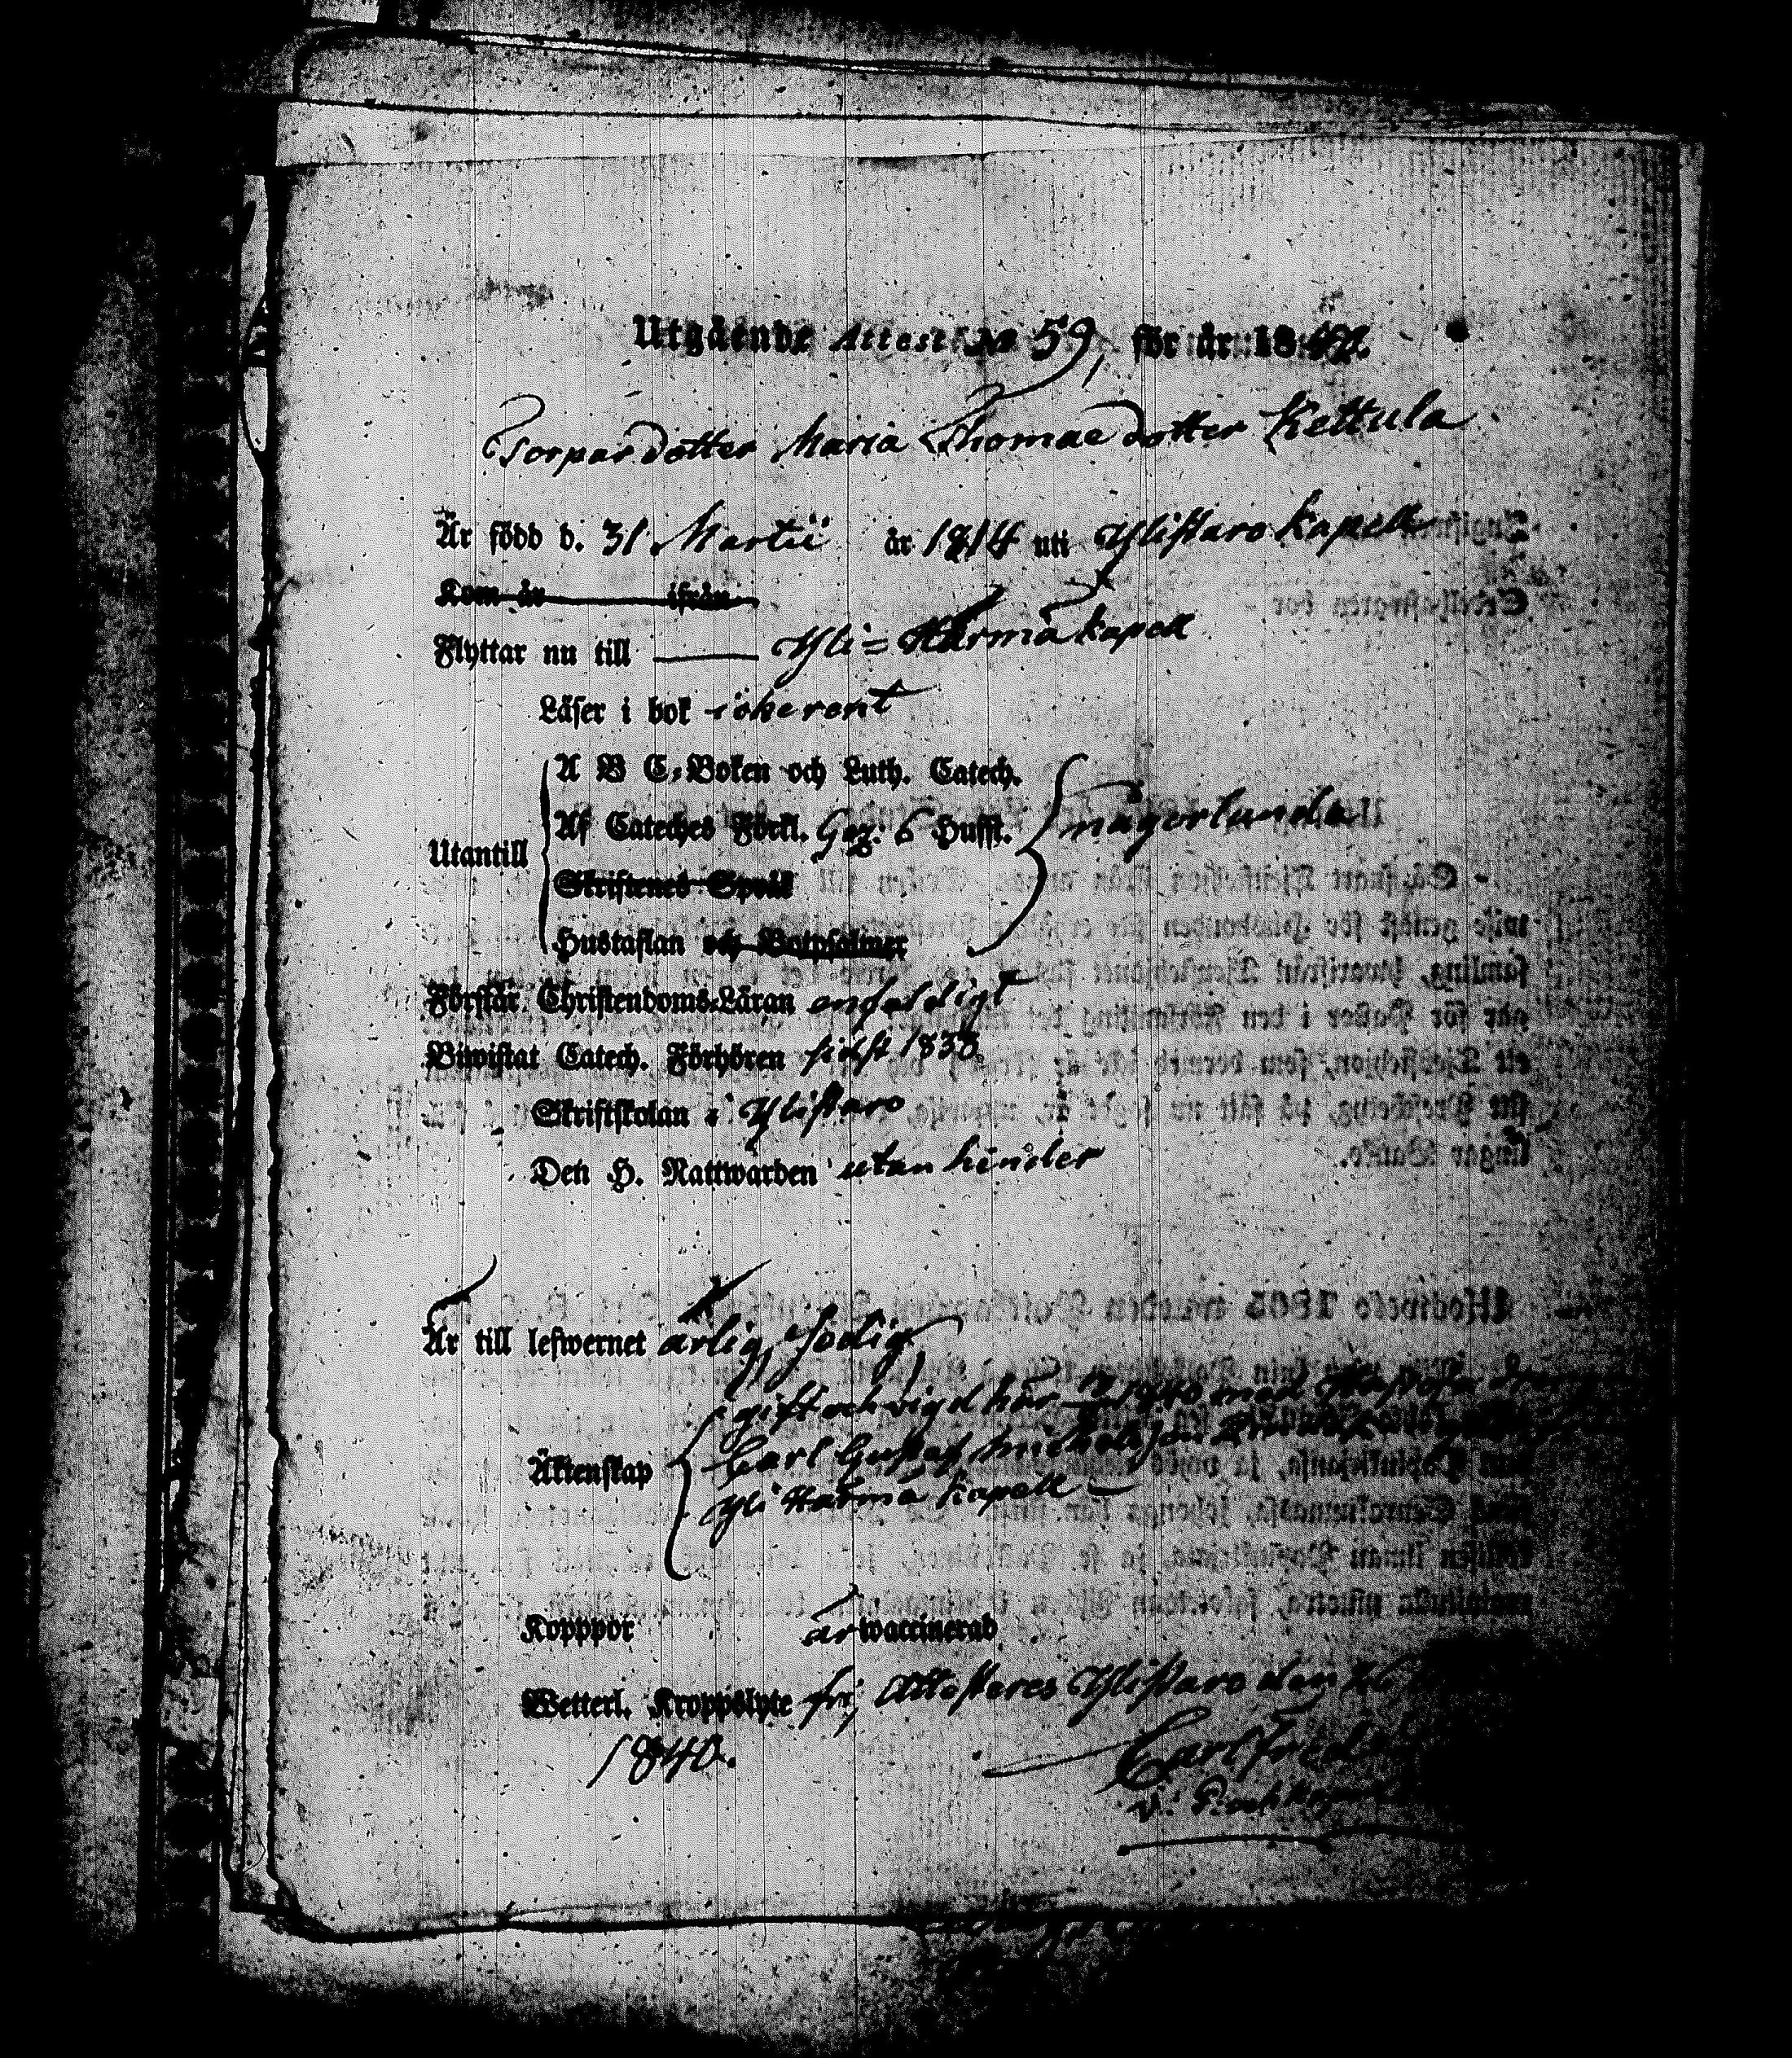 Utgående Attest No 59, för år 1840.
Torpardotter Maria Thomae dotter Kettula
Är född d. 31 Martii år 1814 uti Ylistaro Kapell
Kom år ifrån
Flyttar nu till Yli-Härmä kapell
Läser i bok oherent
A B C-Boken och Luth. Catech.
Af Cateches Förkl. Gez: 6 Hufst. någorlunda
Utantill
Skriftenes Språk
Hustaflan och Botpsalmer
Förstår Christendoms-Läran enfaldigt
Biwistat Catech. Förhören sidst 1838
Skriftskolan i Ylistaro
Den H. Nattwarden utan hinder
Är till lefwernet ärlig, sedig
gift och vigd här 1840 med
Carl Gustaf Michelsson
Äktenskap
Yli Härmä Kapell
Kopppor är waccinerad
Wetterl. Kroppslyte fri, Attesteres Ylistaro den 26
1840.
Carl Fred
v: